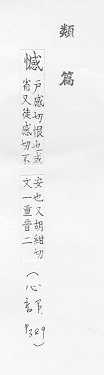 類篇
憾
戶感切恨也或
省又徒感切不
安也又胡紺切
文一重音二
(心部 P.389)